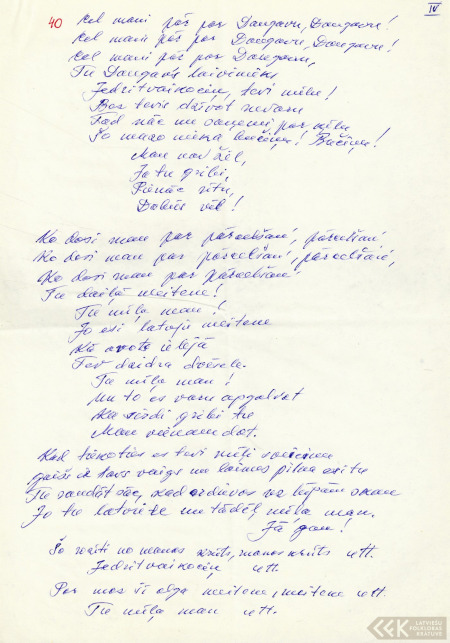 IV
40 Cel mani pār par Daugavu, Daugavu!
Cel mani pār par Daugavu, Daugavu!
Cel mani pār par Daugavu,
Tu Daugavis laiviniek
Jedritvaikociņ, tevi mīlu!
Bez tevis dzīvot nevaru
Tad nāc un saņemi par mīlu
Šo mazo bučiņu! Bučiņu!
Man nav žēl,
Ja tu gribi,
Pienāc rītu,
Dabūs vēl!
Ko dosi man par pārcelšan', pārcelšan'
Ko dosi man par pārcelšan', pārcelšan',
Ko dosi man par pārcelšan'
Tu daiļā meitene!
Tu mīļa man!
Jo esi latvju meitene
Kā avots ielejā
Tev daidra dvēsele.
Tu mīļa man!
un to es varu apgalvot
ka sirdi gribi tu
Man vienam dot.
Kad tikoties es tevi mīļi sveicinu
gaiši ir tavs vaigs un laimes pilna esi tu
Tu sandāt sāc, kad ardievas no lūpām skan
Jo tu latviete un tādēļ mīļa man.
Jā gan!
Šo roziti no manas krūts, manas krūts utt.
Jedritvaikociņ utt.
Par mos šī oļga meitene, meitene utt.
Tu mīļa man utt.
LATVIEŠU
FOLKLORAS
KRĀTUVE